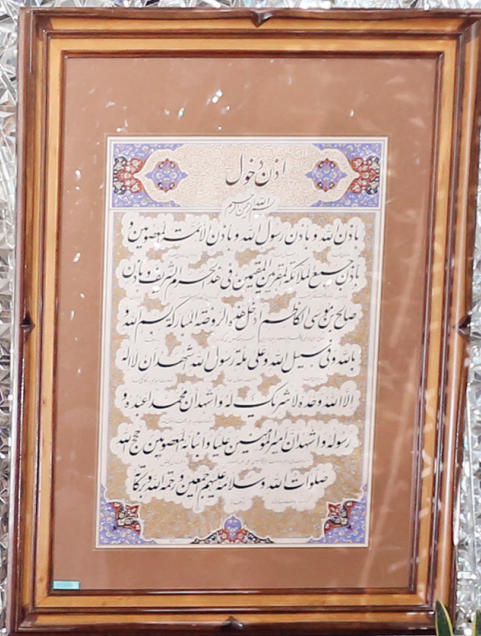 اذن دخول
بسم الله الرحمن الرحیم
باذن الله و باذن رسول الله و باذن الائمة المعصومین
باذن جمیع الملائکة المقربین المقیمین فی هذا الحرم الشریف و باذن
صالح بن موسی الکاظم ادخل هذه الروضة المبارکة بسم الله و
بالله و فی سبیل الله و علی ملة رسول الله اشهد ان لا اله
الا الله وحده لا شریک له و اشهد ان محمدا عبده و
رسوله و اشهد ان امیر المؤمنین علیا و ابنائه المعصومین حجج الله
صلوات الله و سلامه علیهم اجمعین و رحمة الله و برکاته